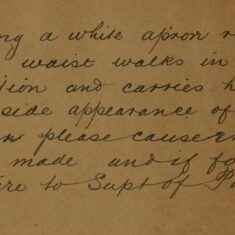 ng a white apron
waist walks in
tion and carries h
side appearance of
please cause
made and if fo
ire to Supt of P